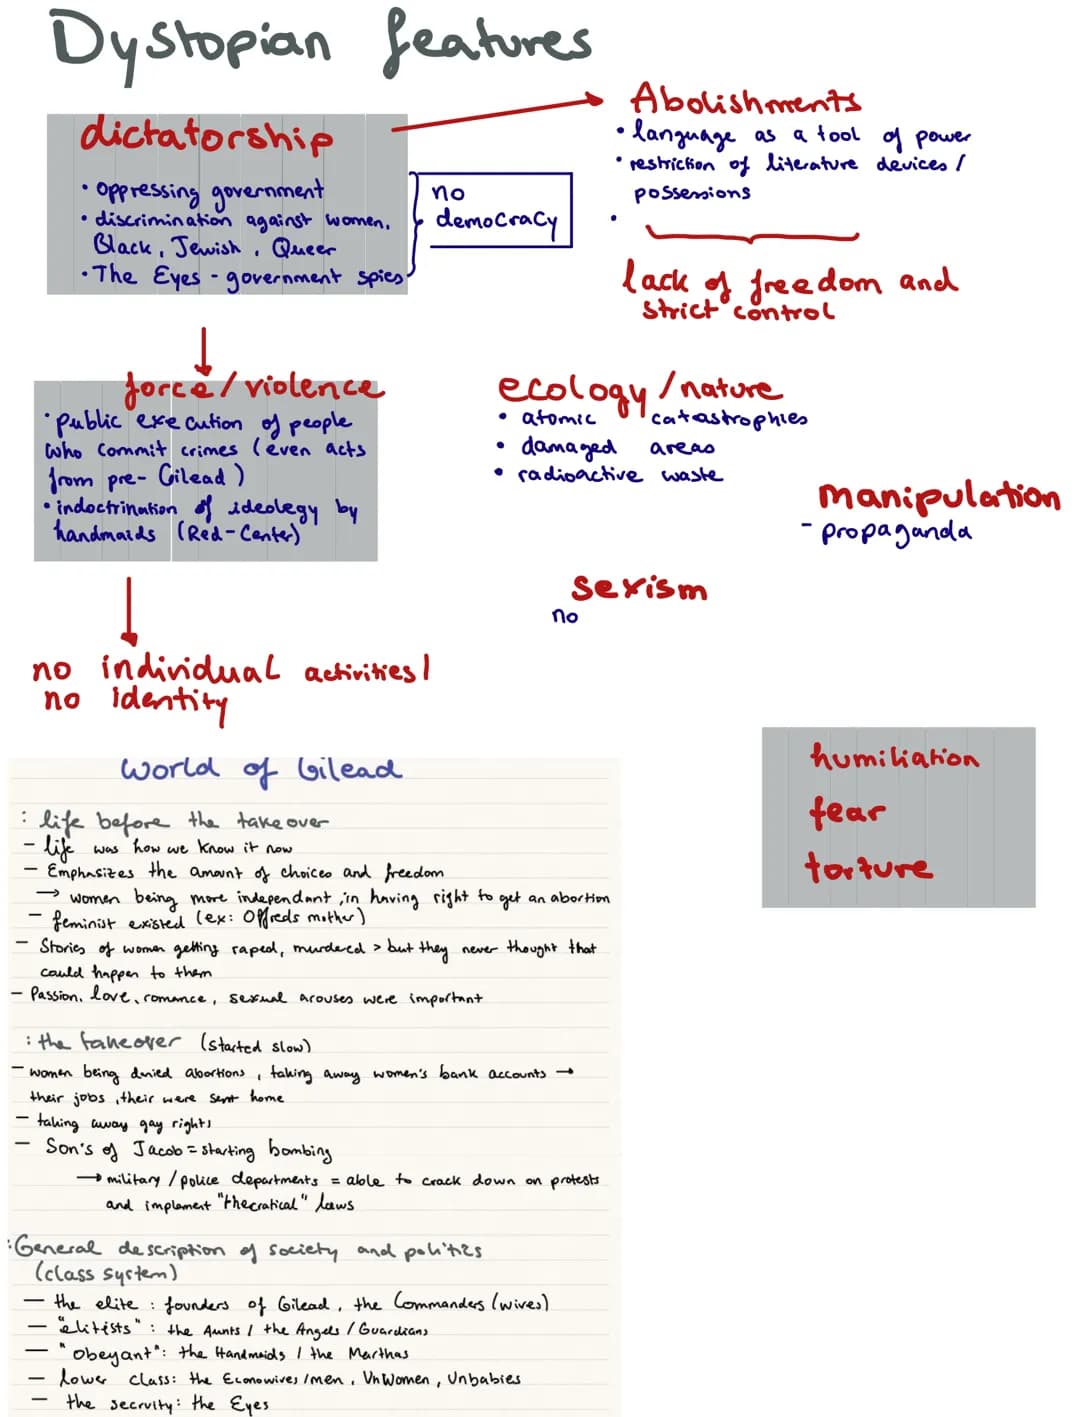 Dystopian features
dictatorship
• oppressing government
• discrimination against women,
Black, Jewish, Queer
• The Eyes - government spies
no
democracy
Abolishments
• language as a tool of power
• restriction of literature devices /
possessions
•
lack of freedom and
strict control
force / violence
• public execution of people
who commit crimes (even acts
from pre- Gilead)
• indoctrination of ideolegy by
handmaids (Red-Center)
ecology / nature
• atomic catastrophies
• damaged areas
• radioactive waste
manipulation
- propaganda
sexism
no
no individual activities /
no identity
humiliation
fear
torture
World of Gilead
: life before the takeover
- life was how we know it now
- Emphasizes the amount of choices and freedom
→ women being more independant, in having right to get an abortion
- feminist existed (ex: Offreds mother)
- Stories of women getting raped, murdered > but they never thought that
could happen to them
- Passion, love, romance, sexual arouses were important
: the takeover (started slow)
- women being denied abortions, taking away women's bank accounts →
their jobs, their were sent home
- taking away gay rights
- Son's of Jacob = starting bombing
→ military / police departments = able to crack down on protests
and implement "thecratical" laws
: General description of society and politics
(class system)
- the elite : founders of Gilead, the Commanders (wives)
- "elitists" : the Aunts / the Angels / Guardians
- "obeyant": the Handmaids / the Marthas
- lower class: the Econowives /men, UnWomen, Unbabies
- the secruity: the Eyes